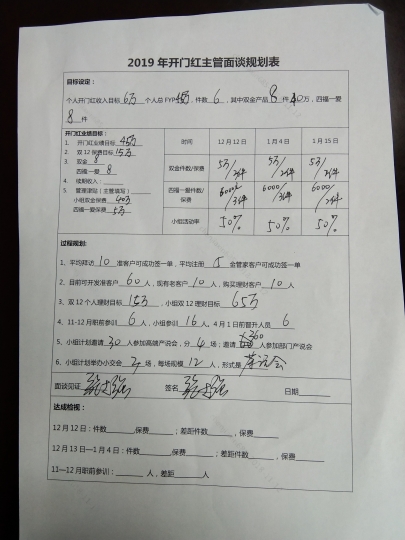 2019 年开门红主管面谈规划表
目标设定:
个人开门红收入目标 6万 个人总 FYP 45万, 件数 6, 其中双金产品 8 件 40万, 四福一爱
8 件
开门红业绩目标:
1. 开门红业绩目标 45万
2. 双 12 保费目标 15万
3. 双金 8
四福一爱 8
4. 续期收入:
5. 管理津贴(主管填写)
小组双金保费 40万
四福一爱保费 5万
时间 12 月 12 日 1 月 4 日 1 月 15 日
双金件数/保费 5万/2件 5万/2件 5万/2件
四福一爱件数/保费 6000/3件 6000/3件 6000/3件
小组活动率 50% 50% 50%
过程规划:
1、平均拜访 10 准客户可成功签一单, 平均注册 5 金管家客户可成功签一单
2、目前可开发准客户 60 人, 现有老客户 10 人, 购买理财客户 10 人
3、双 12 个人理财目标 15万, 小组双 12 理财目标 65万
4、11-12 月职前参训 6 人, 小组参训 16 人, 4 月 1 日前晋升人员 6
5、小组计划邀请 30 人参加高端产说会, 分 4 场; 邀请 360 人参加部门产说会
6、小组计划举办小交会 2 场, 每场规模 12 人, 形式是 茶话会
面谈见证 签名 日期
达成检视:
12 月 12 日: 件数 保费 ; 差距件数 , 保费
12 月 13 日—1 月 4 日: 件数 保费 ; 差距件数 , 保费
11—12 月职前参训: 人, 差距 人